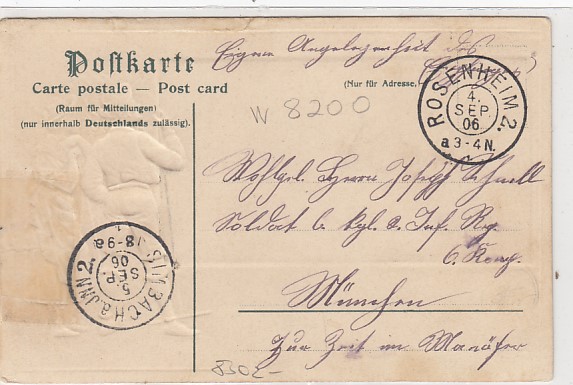 Postkarte
Carte postale — Post card
(Raum für Mitteilungen)
(nur innerhalb Deutschlands zulässig).
Eigene Angelegenheit des
(Nur für Adresse)
W 8200
ROSENHEIM 2.
4.
SEP.
06.
a 3-4 N.
Wohlgeb. Herrn Joseph
Soldat b. kgl. Inf. Reg.
6. Komp.
München
Zur Zeit im Manöver
SIMBACH a. INN 2.
5.
SEP.
06
8-9a